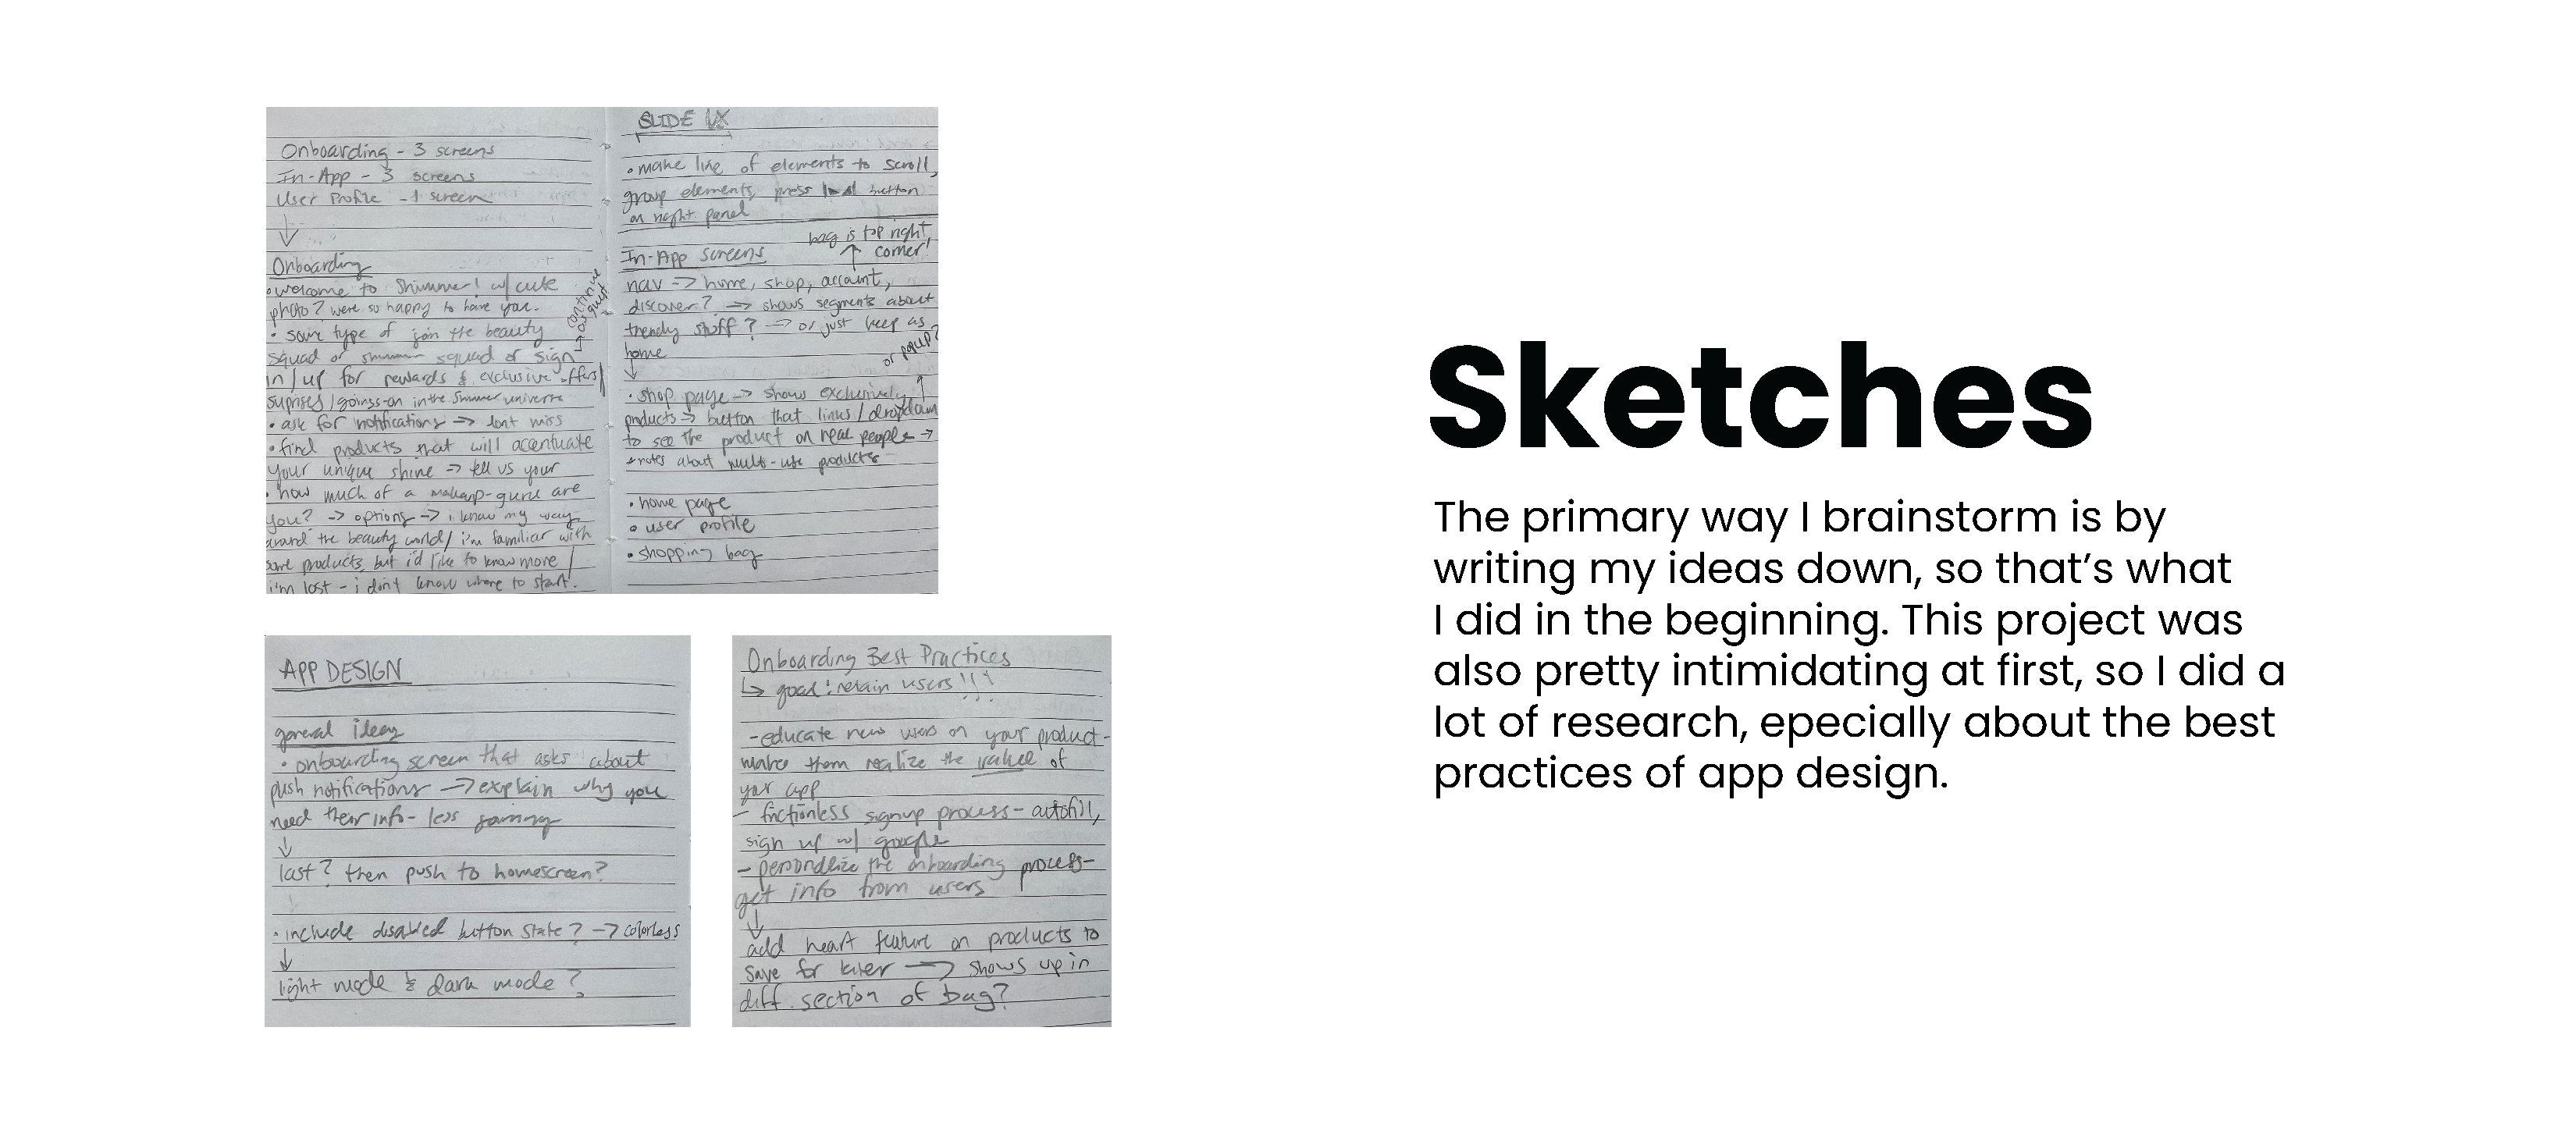 Onboarding - 3 screens
In-App - 3 screens
User Profile - 1 screen
Onboarding
• welcome to Shimmer! w/ cute
photo? were so happy to have you.
• some type of join the beauty
squad or squad or sign
in/up for rewards & exclusive offers/
suprises/goings-on in the Simmer universe
→ continue as guest
• ask for notifications -> dont miss
• find products that will accentuate
your unique shine -> tell us your
• how much of a makeup-guru are
you? -> options -> i know my way
around the beauty world/ i'm familiar with
some products, but i'd like to know more /
i'm lost - i don't know where to start.
SLIDE UX
• make line of elements to scroll,
group elements, press button
on right panel
bag is top right
corner!
In-App screens
nav -> home, shop, account,
discover? -> shows segments about
trendy stuff? -> or just keep as
home
or popup?
• shop page -> shows exclusively
products -> button that links/dropdown
to see the product on real people ->
+ notes about multi-use products
• home page
• user profile
• shopping bag
APP DESIGN
general ideas
• onboarding screen that asks about
push notifications -> explain why you
need their info - less
last? then push to homescreen?
• include disabled button state? -> colorless
light mode & dark mode?
Onboarding Best Practices
↳ goal: retain users!!!
- educate new users on your product -
make them realize the value of
your app
- frictionless signup process - autofill,
sign up w/ google
- personalize the onboarding process -
get info from users
add heart feature on products to
save for later -> shows up in
diff. section of bag?
Sketches
The primary way I brainstorm is by
writing my ideas down, so that's what
I did in the beginning. This project was
also pretty intimidating at first, so I did a
lot of research, epecially about the best
practices of app design.